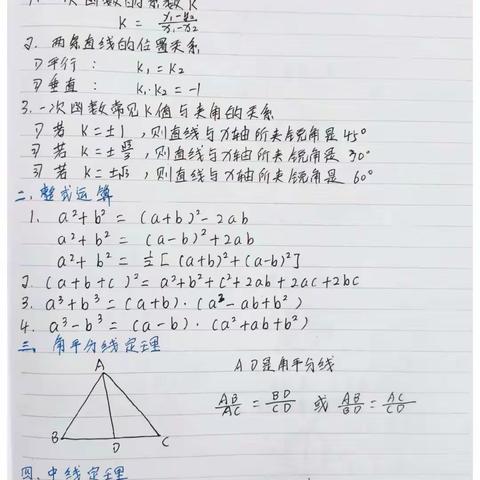 1. 一次函数的系数K
K = \frac{y_1-y_2}{x_1-x_2}
2. 两条直线的位置关系
1) 平行: K₁=K₂
2) 垂直: K₁·K₂=-1
3. 一次函数常见K值与夹角的关系
1) 若 K=±1, 则直线与x轴所夹锐角是45°
2) 若 K=±\frac{\sqrt{3}}{3}, 则直线与x轴所夹锐角是 30°
3) 若 K=±√3, 则直线与x轴所夹锐角是 60°
二、整式运算
1. a²+b² = (a+b)²-2ab
a²+b² = (a-b)²+2ab
a²+b² = ½[(a+b)²+(a-b)²]
2. (a+b+c)²=a²+b²+c²+2ab+2ac+2bc
3. a³+b³=(a+b)·(a²-ab+b²)
4. a³-b³=(a-b)·(a²+ab+b²)
三、角平分线定理
A
B
D
C
AD是角平分线
\frac{AB}{AC} = \frac{BD}{CD} 或 \frac{AB}{BD} = \frac{AC}{CD}
四、中线定理